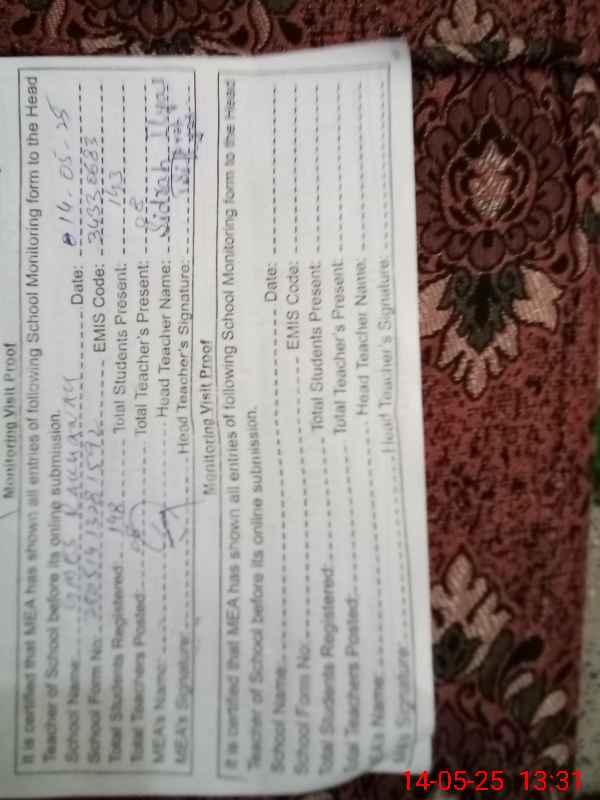 Monitoring Visit Proof
It is certified that MEA has shown all entries of following School Monitoring form to the Head
Teacher of School before its online submission.
School Name: Date: 14-05-25
School Form No: EMIS Code:
Total Students Registered: 148 Total Students Present: 143
Total Teachers Posted: Total Teacher's Present: 08
MEA's Name: Head Teacher Name: Sidrah Ilyas
MEA's Signature: Head Teacher's Signature:
Monitoring Visit Proof
It is certified that MEA has shown all entries of following School Monitoring form to the Head
Teacher of School before its online submission.
School Name: Date:
School Form No: EMIS Code:
Total Students Registered: Total Students Present:
Total Teachers Posted: Total Teacher's Present:
MEA's Name: Head Teacher Name:
MEA's Signature: Head Teacher's Signature:
14-05-25 13:31